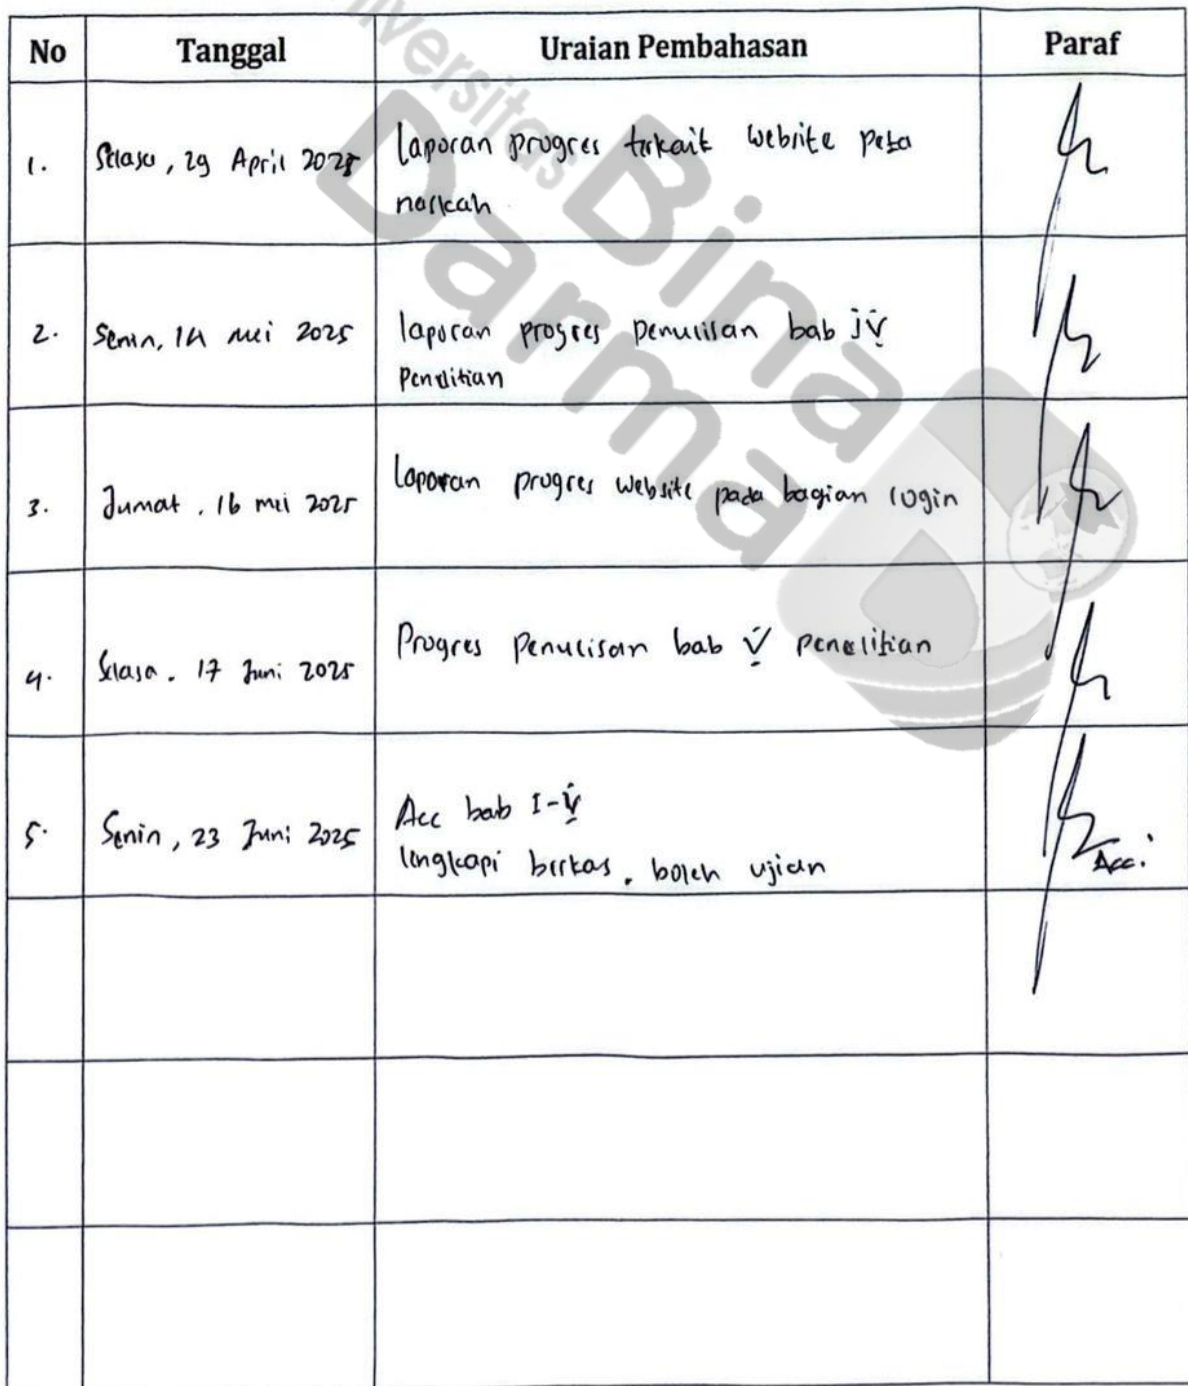 Universitas
Bina
Darma
No Tanggal Uraian Pembahasan Paraf
1. Selasa, 29 April 2025 laporan progres terkait website peta
naskah
2. Senin, 14 mei 2025 laporan progres penulisan bab IV
Penelitian
3. Jumat, 16 mei 2025 Laporan progres website pada bagian login
4. Selasa, 17 Juni 2025 Progres penulisan bab V penelitian
5. Senin, 23 Juni 2025 Acc bab I-V
lengkapi berkas, boleh ujian
Acc.